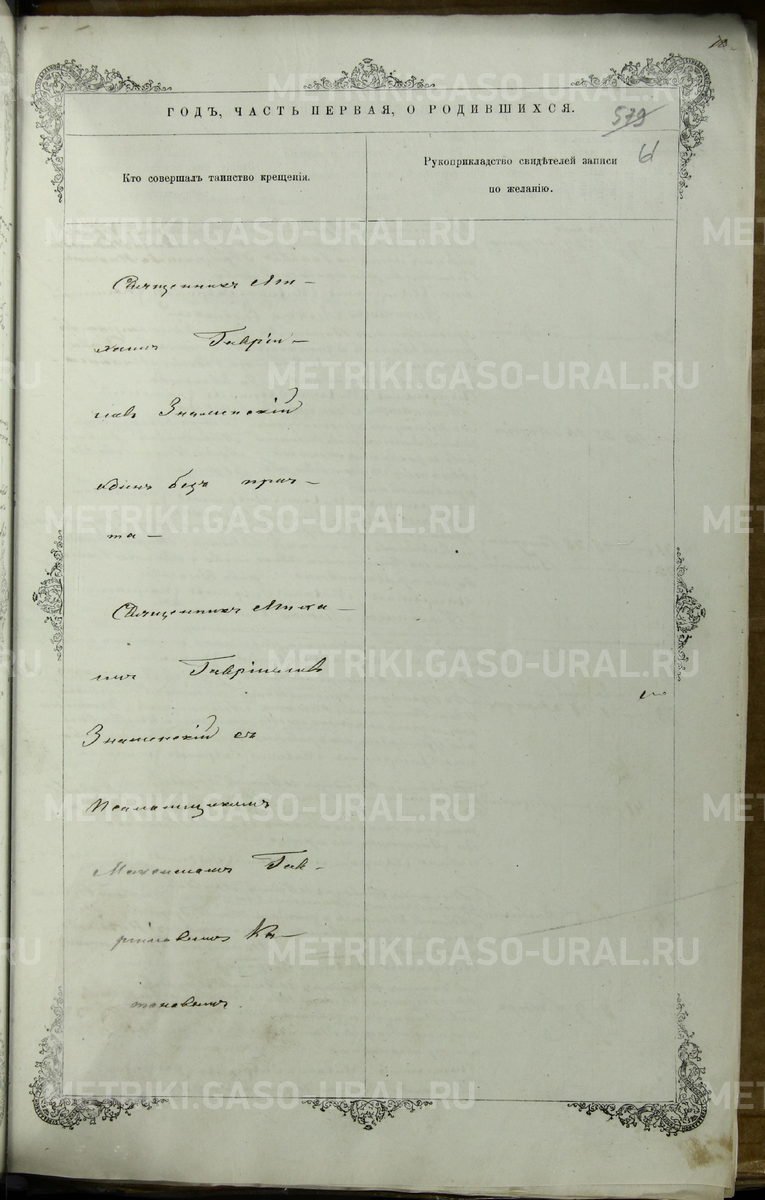 ГОДЪ, ЧАСТЬ ПЕРВАЯ, О РОДИВШИХСЯ.
579
61
Кто совершалъ таинство крещенія.
Рукоприкладство свидѣтелей записи
по желанію.
Священникъ Ми-
хаилъ Гавріи-
ловъ Знаменскій
единъ безъ прич-
та-
Священникъ Миха-
илъ Гавріиловъ
Знаменскій съ
Псаломщикомъ
Гав-
ріиловымъ
METRIKI.GASO-URAL.RU